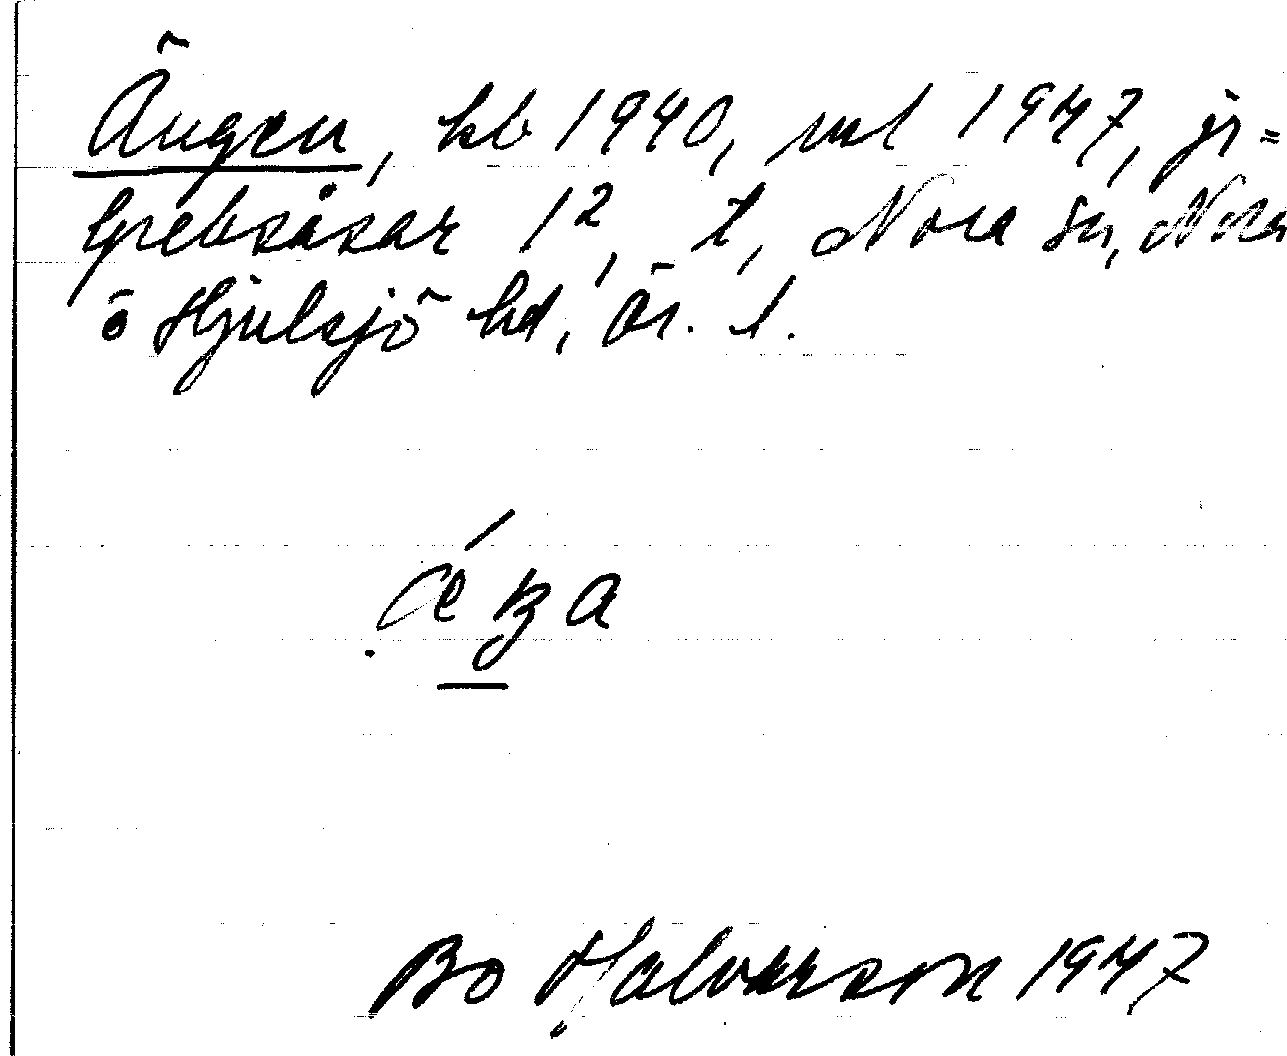 Ängen, kb 1940, ml 1947, jr =
Grebsåsar 1², t, Nora sn, Nora
o Hjulsjö hd, Ör. l.
ǽŋa
Bo Halvarson 1947